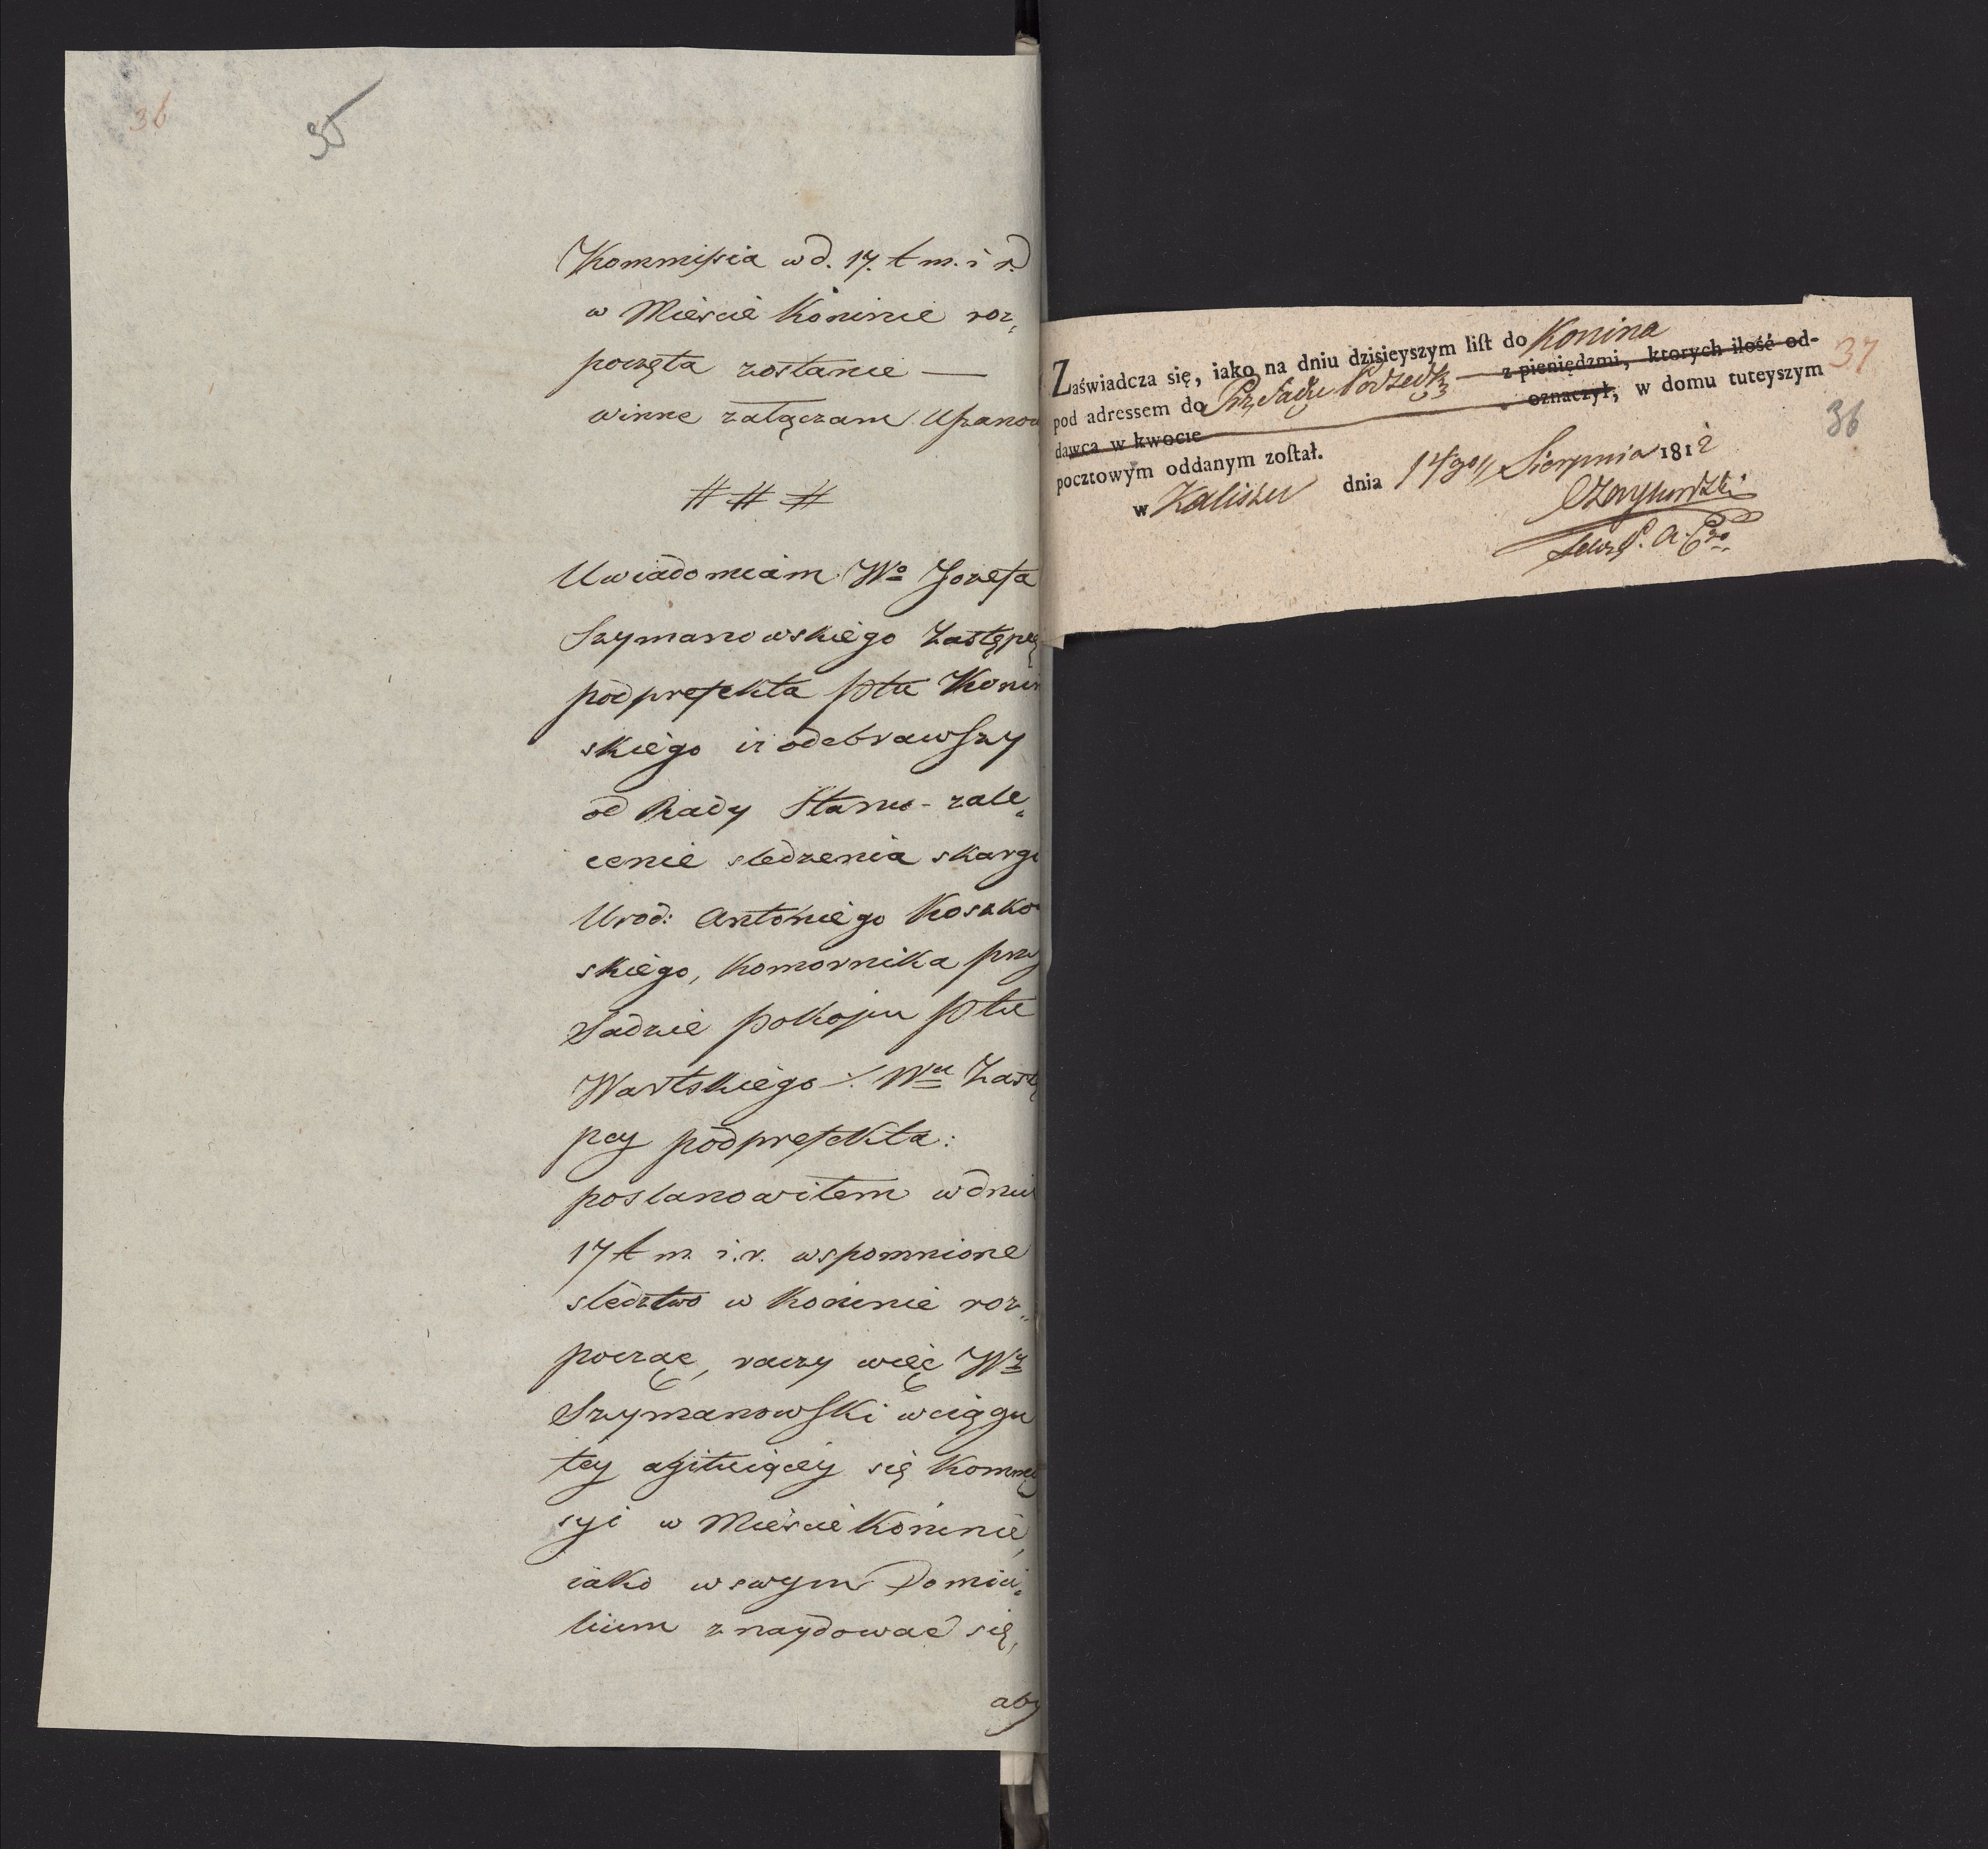 36
35
Kommissia w d. 17. t m. i r.
w Mieście Koninie roz,
poczęta zostanie —
winne załączam Uszanow
# # #
Uwiadomiam Wo Jozefa
Szymanowskiego Zastępcę
podprefekta Ptu Konin
skiego iż odebrawszy
od Rady Stanu - zale„
cenie sledzenia skargi
Urod: Antoniego Koszko
skiego, Komornika przy
Sadzie pokoju Ptu
Wartskiego /. Wu Zastę
pcy podprefekta:
postanowiłem w dniu
17 t m. i. r. wspomnione
sledztwo w Koninie roz„
począć, raczy więc Wy
Szymanowski w ciągu
tey agituiącéy się Kommis
syi w Mieście Koninie,
iako w swym Domici„
lium znaydować się,
aby
Zaświadcza się, iako na dniu dzisieyszym list do Konina
pod adressem do Prz. Sądu — z pieniędzmi, ktorych ilość od-
dawca w kwocie — oznaczył, w domu tuteyszym
pocztowym oddanym został.
w Kaliszu dnia 14go Sierpnia 1812
37
36